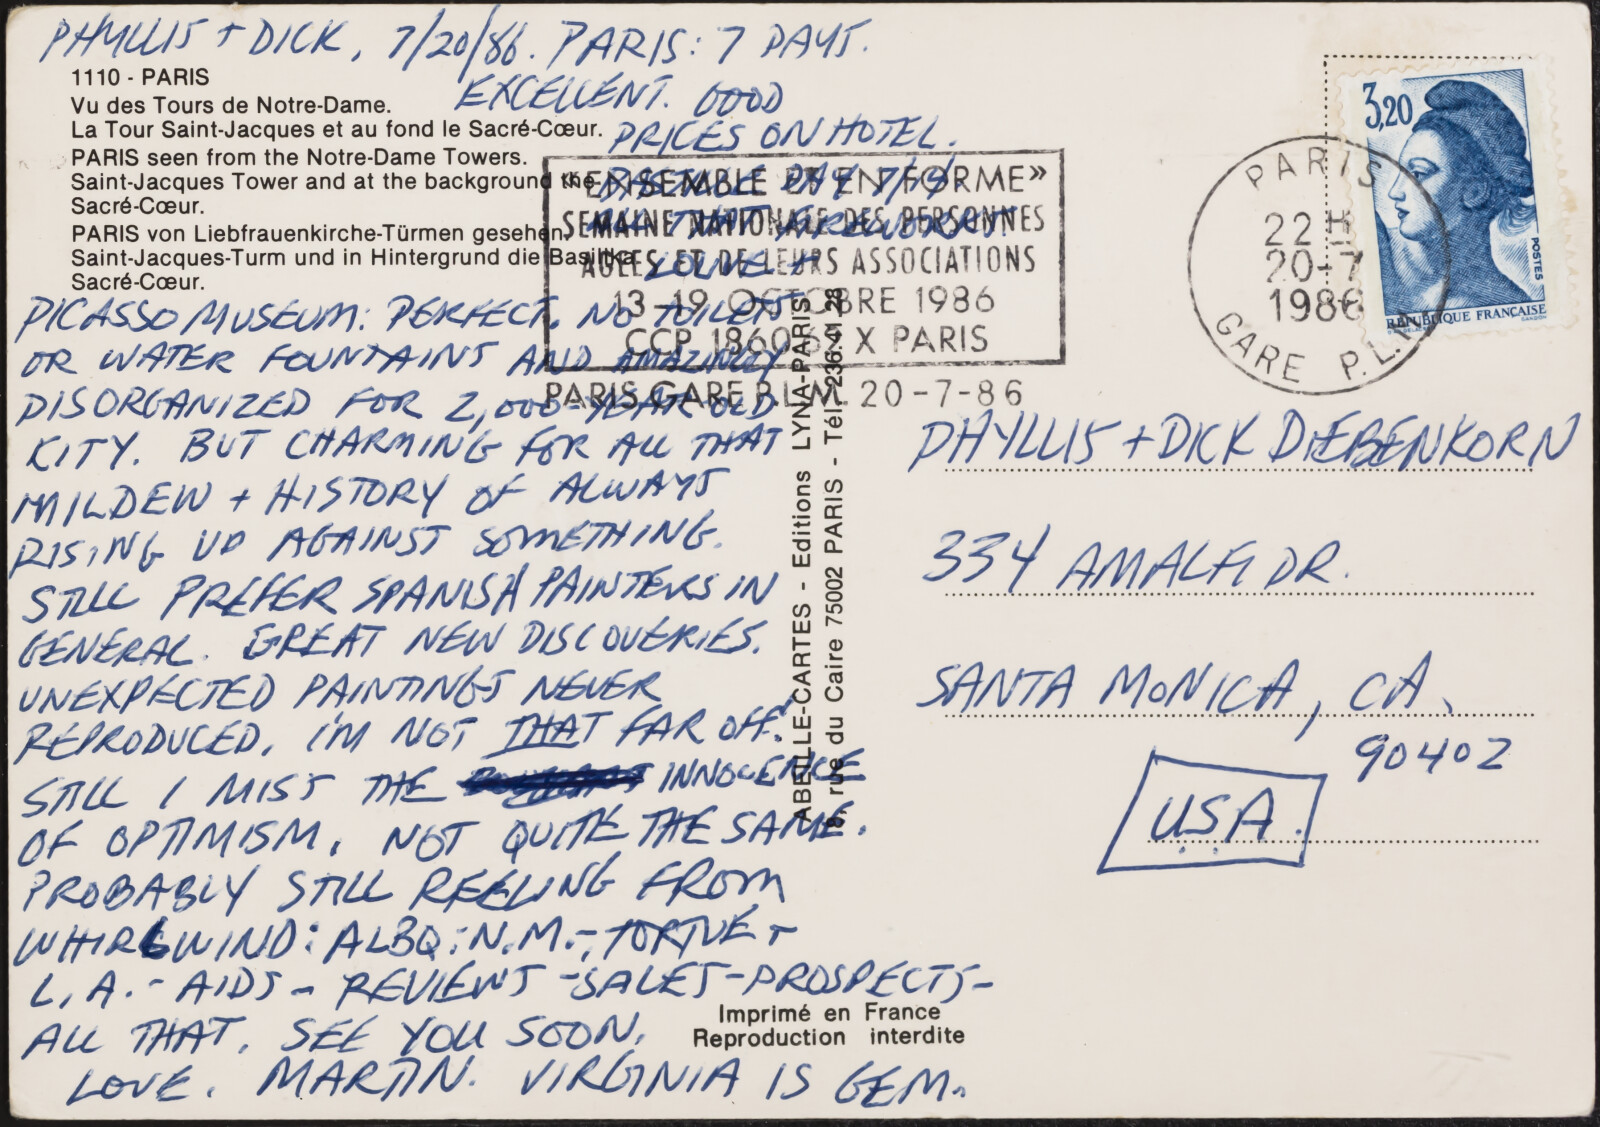 PHYLLIS + DICK, 7/20/86. PARIS: 7 DAYS.
EXCELLENT. GOOD
PRICES ON HOTEL.
BASTILLE DAY 7/14.
ALL THAT FIREWORKS.
LOUVRE +
PICASSO MUSEUM: PERFECT. NO TOILETS
OR WATER FOUNTAINS AND AMAZINGLY
DISORGANIZED FOR 2,000-YEAR-OLD
CITY. BUT CHARMING FOR ALL THAT
MILDEW + HISTORY OF ALWAYS
RISING UP AGAINST SOMETHING.
STILL PREFER SPANISH PAINTERS IN
GENERAL. GREAT NEW DISCOVERIES.
UNEXPECTED PAINTINGS NEVER
REPRODUCED. I'M NOT THAT FAR OFF.
STILL I MISS THE INNOCENCE
OF OPTIMISM, NOT QUITE THE SAME.
PROBABLY STILL REELING FROM
WHIRLWIND: ALBQ. N.M. - TORTUE +
L.A. - AIDS - REVIEWS - SALES - PROSPECTS -
ALL THAT. SEE YOU SOON.
LOVE. MARTIN. VIRGINIA IS GEM.
1110 - PARIS
Vu des Tours de Notre-Dame.
La Tour Saint-Jacques et au fond le Sacré-Cœur.
PARIS seen from the Notre-Dame Towers.
Saint-Jacques Tower and at the background the
Sacré-Cœur.
PARIS von Liebfrauenkirche-Türmen gesehen,
Saint-Jacques-Turm und in Hintergrund die Basilika
Sacré-Cœur.
« ENSEMBLE ET EN FORME »
SEMAINE NATIONALE DES PERSONNES
AGEES ET DE LEURS ASSOCIATIONS
13-19 OCTOBRE 1986
CCP X PARIS
PARIS GARE P.L.M. 20-7-86
ABEILLE-CARTES - Editions LYNA-PARIS
8, rue du Caire 75002 PARIS - Tél. 236.41.28
Imprimé en France
Reproduction interdite
3,20
POSTES
RÉPUBLIQUE FRANÇAISE
PARIS
22 H
20-7
1986
GARE P.L.M
PHYLLIS + DICK DIEBENKORN
334 AMALFI DR.
SANTA MONICA, CA.
90402
USA.